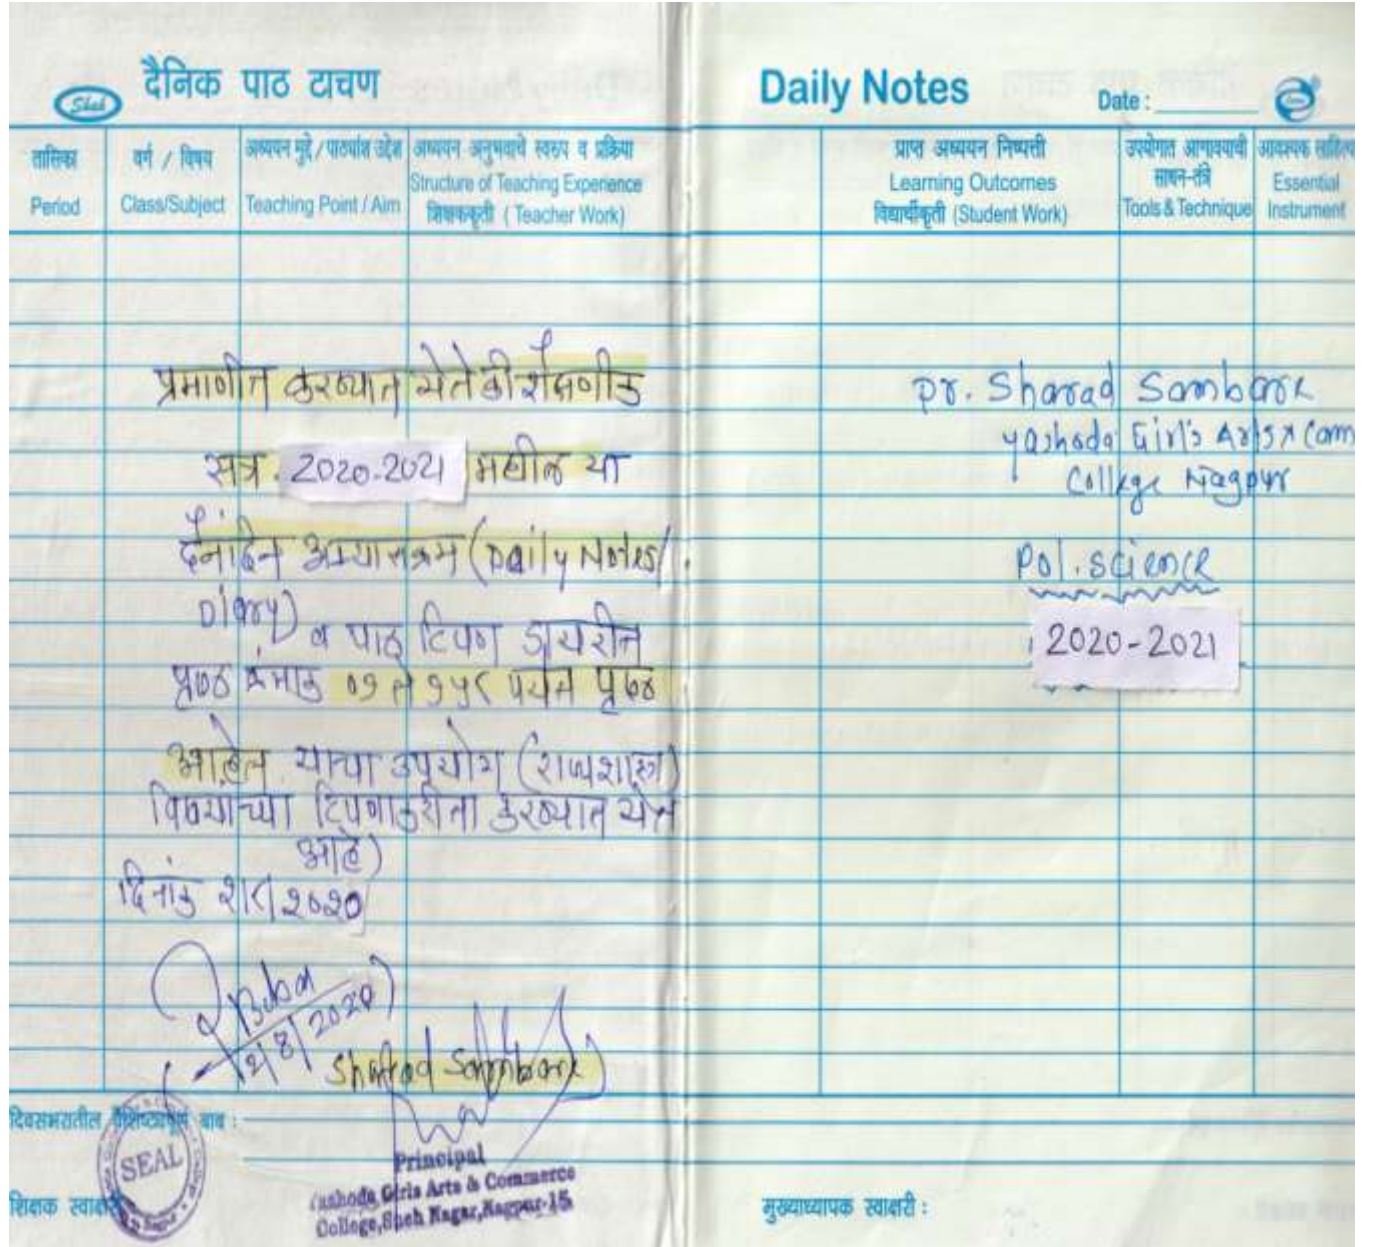 Shah
दैनिक पाठ टाचण
तासिका
Period
वर्ग / विषय
Class/Subject
अध्ययन मुद्दे / पाठ्यांश उद्देश
Teaching Point / Aim
अध्ययन अनुभवाचे स्वरुप व प्रक्रिया
Structure of Teaching Experience
शिक्षककृती ( Teacher Work)
प्रमाणीत करण्यात येते की शैक्षणीक
सत्र. 2020-2021 मधील या
दैनंदिन अभ्यासक्रम (Daily Notes/
Diary) व पाठ टिपण डायरीत
पृष्ठ क्रंमाक ०१ ते १५८ पर्यंत पृष्ठ
आहेत याचा उपयोग (राज्यशास्त्र)
विषयाच्या टिपणाकरीता करण्यात येत
आहे)
दिनांक २/८/२०२०
2/8/2020
Sharad Sambare
दिवसभरातील वैशिष्ट्यपूर्ण बाब :
SEAL
Principal
Yashoda Girls Arts & Commerce
College, Sneh Nagar, Nagpur-15
शिक्षक स्वाक्षरी
Daily Notes
Date :
प्राप्त अध्ययन निष्पत्ती
Learning Outcomes
विद्यार्थीकृती (Student Work)
उपयोगात आणावयाची
साधन-तंत्रे
Tools & Technique
आवश्यक साहित्य
Essential
Instrument
Dr. Sharad Sambare
Yashoda Girl's Arts & Com
College Nagpur
Pol. Science
2020-2021
मुख्याध्यापक स्वाक्षरी :